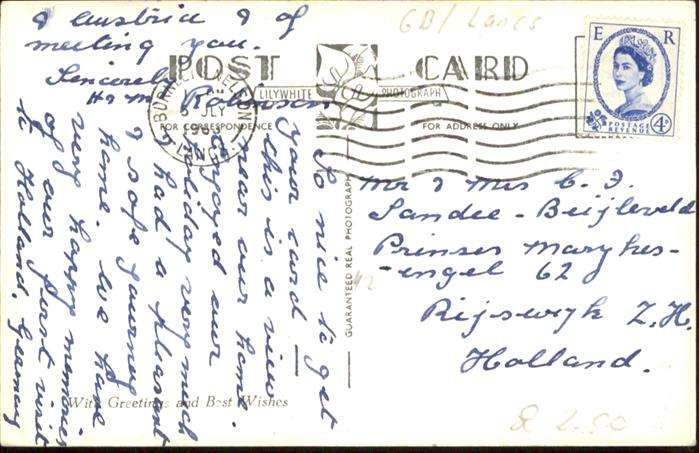 So nice to get
your card
this is a view
near our home.
enjoyed our
holiday very much
& had a pleasant
& safe journey
home. we have
very happy memories
of our first visit
to Holland, Germany
& Austria & of
meeting you.
Sincerely
H & M Robinson
GB/Lancs
POST CARD
LILYWHITE PHOTOGRAPH
FOR CORRESPONDENCE
FOR ADDRESS ONLY
NELSON
5 JLY
LANCS
E R
POSTAGE
REVENUE
4D
GUARANTEED REAL PHOTOGRAPH
Mr & Mrs C. J.
Sandee - Beijleveld
Prinses Marykes-
-engel 62
Rijswyk Z.H.
Holland.
With Greetings and Best Wishes